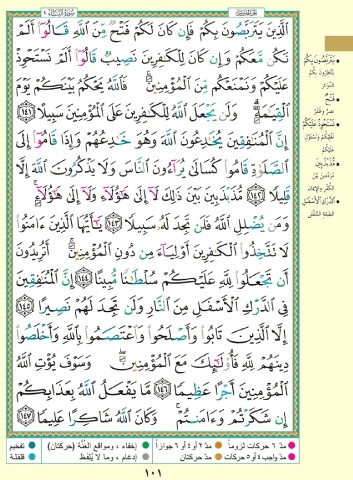 سورة النساء ٤
ٱلَّذِينَ يَتَرَبَّصُونَ بِكُمْ فَإِن كَانَ لَكُمْ فَتْحٌ مِّنَ ٱللَّهِ قَالُوٓا۟ أَلَمْ
نَكُن مَّعَكُمْ وَإِن كَانَ لِلْكَٰفِرِينَ نَصِيبٌ قَالُوٓا۟ أَلَمْ نَسْتَحْوِذْ
عَلَيْكُمْ وَنَمْنَعْكُم مِّنَ ٱلْمُؤْمِنِينَ ۚ فَٱللَّهُ يَحْكُمُ بَيْنَكُمْ يَوْمَ
ٱلْقِيَٰمَةِ ۗ وَلَن يَجْعَلَ ٱللَّهُ لِلْكَٰفِرِينَ عَلَى ٱلْمُؤْمِنِينَ سَبِيلًا ١٤١
إِنَّ ٱلْمُنَٰفِقِينَ يُخَٰدِعُونَ ٱللَّهَ وَهُوَ خَٰدِعُهُمْ وَإِذَا قَامُوٓا۟ إِلَى
ٱلصَّلَوٰةِ قَامُوا۟ كُسَالَىٰ يُرَآءُونَ ٱلنَّاسَ وَلَا يَذْكُرُونَ ٱللَّهَ إِلَّا
قَلِيلًا ١٤٢ مُّذَبْذَبِينَ بَيْنَ ذَٰلِكَ لَآ إِلَىٰ هَٰٓؤُلَآءِ وَلَآ إِلَىٰ هَٰٓؤُلَآءِ ۚ
وَمَن يُضْلِلِ ٱللَّهُ فَلَن تَجِدَ لَهُۥ سَبِيلًا ١٤٣ يَٰٓأَيُّهَا ٱلَّذِينَ ءَامَنُوا۟
لَا تَتَّخِذُوا۟ ٱلْكَٰفِرِينَ أَوْلِيَآءَ مِن دُونِ ٱلْمُؤْمِنِينَ ۚ أَتُرِيدُونَ
أَن تَجْعَلُوا۟ لِلَّهِ عَلَيْكُمْ سُلْطَٰنًا مُّبِينًا ١٤٤ إِنَّ ٱلْمُنَٰفِقِينَ
فِى ٱلدَّرْكِ ٱلْأَسْفَلِ مِنَ ٱلنَّارِ وَلَن تَجِدَ لَهُمْ نَصِيرًا ١٤٥
إِلَّا ٱلَّذِينَ تَابُوا۟ وَأَصْلَحُوا۟ وَٱعْتَصَمُوا۟ بِٱللَّهِ وَأَخْلَصُوا۟
دِينَهُمْ لِلَّهِ فَأُو۟لَٰٓئِكَ مَعَ ٱلْمُؤْمِنِينَ ۖ وَسَوْفَ يُؤْتِ ٱللَّهُ
ٱلْمُؤْمِنِينَ أَجْرًا عَظِيمًا ١٤٦ مَّا يَفْعَلُ ٱللَّهُ بِعَذَابِكُمْ
إِن شَكَرْتُمْ وَءَامَنتُمْ ۚ وَكَانَ ٱللَّهُ شَاكِرًا عَلِيمًا ١٤٧
يَتَرَبَّصُونَ بِكُمْ
فَتْحٌ
نَسْتَحْوِذْ عَلَيْكُمْ
مُذَبْذَبِينَ
الدَّرْكِ الْأَسْفَلِ
مدّ ٦ حركات لزوماً
مدّ ٢ أو ٤ أو ٦ جوازاً
إخفاء، ومواقع الغُنَّة (حركتان)
تفخيم
مدّ واجب ٤ أو ٥ حركات
مدّ حركتان
إدغام، وما لا يُلفَظ
قلقلة
١٠١